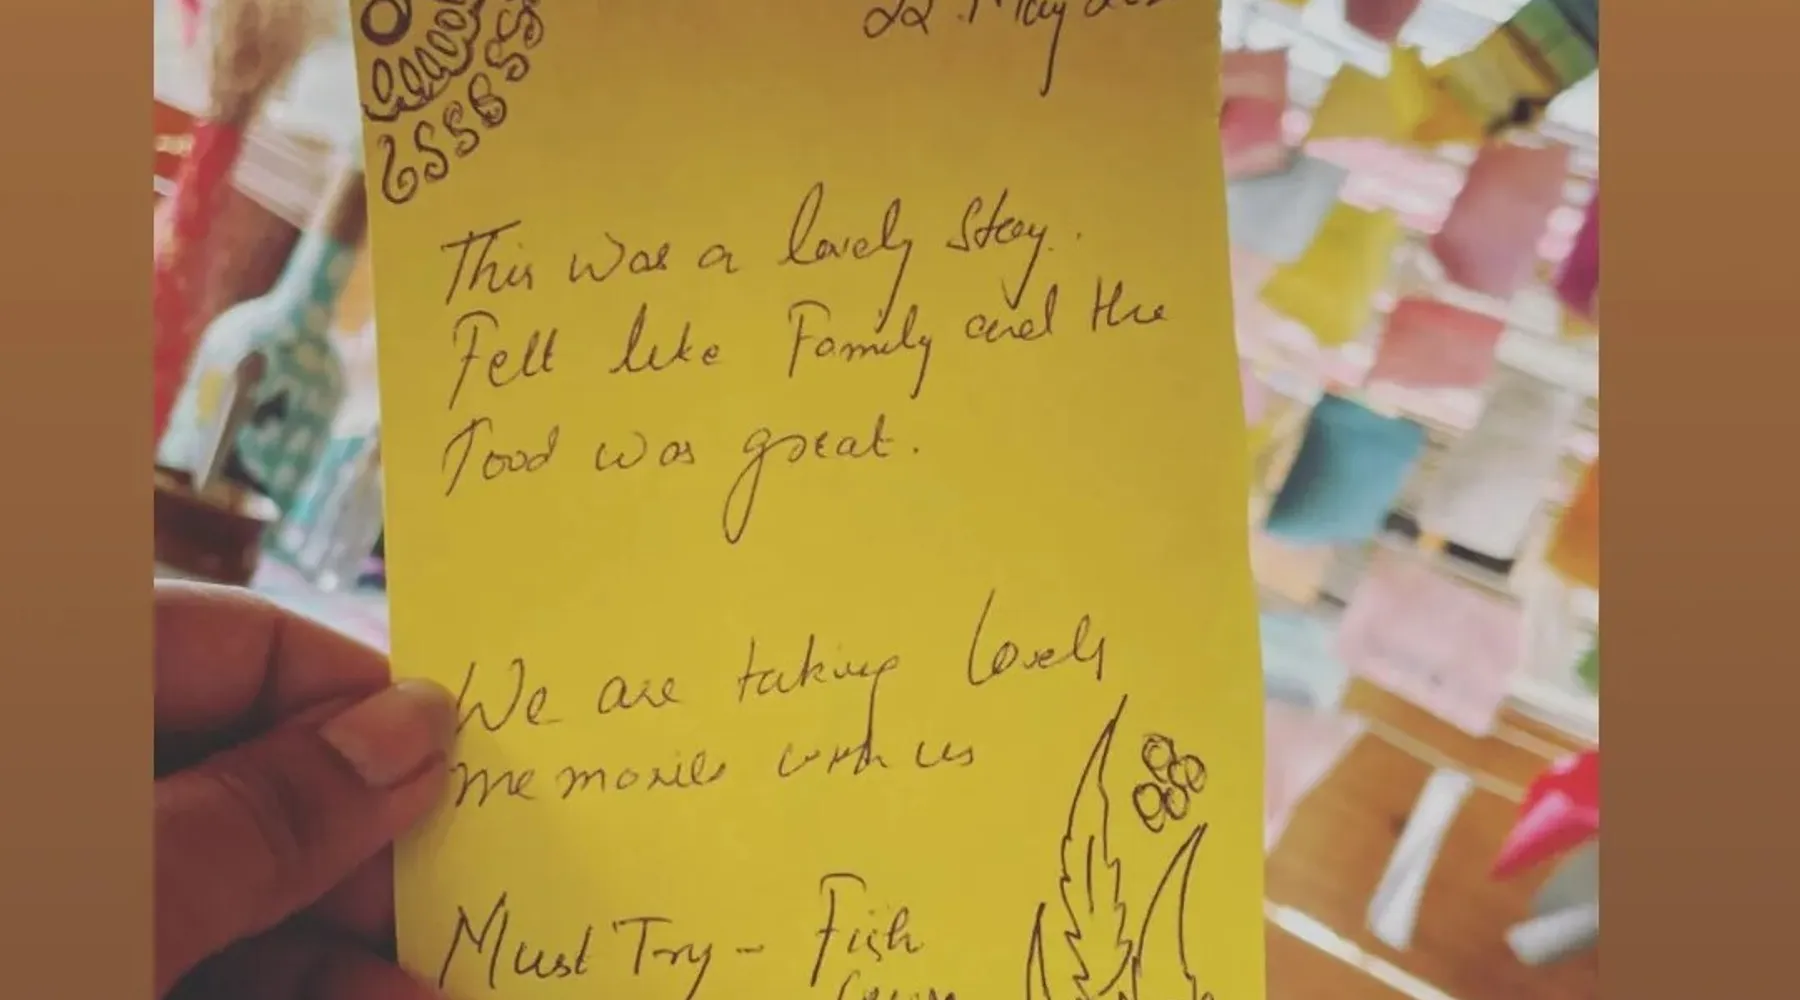 22 May
This was a lovely stay.
Felt like Family and the
Food was great.
We are taking lovely
memories with us
Must Try - Fish